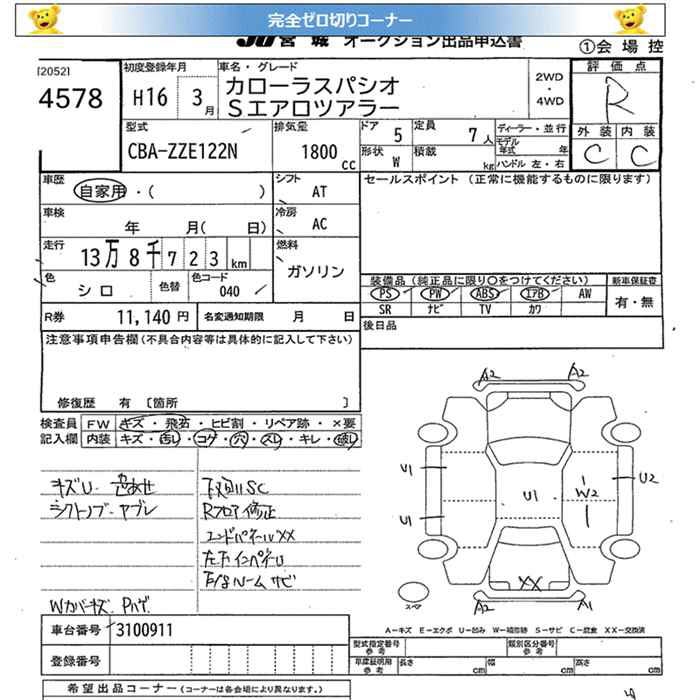 完全ゼロ切りコーナー
JU 宮城 オークション出品申込書
①会場控
[2052]
4578
初度登録年月
H16 3月
車名・グレード
カローラスパシオ
Sエアロツアラー
2WD
・
4WD
評価点
R
外装 内装
C C
型式
CBA-ZZE122N
排気量
1800 cc
ドア 5
定員 7人
形状 W
積載 kg
ディーラー・並行
モデル年式 年
ハンドル 左・右
車歴
自家用・( )
シフト AT
セールスポイント (正常に機能するものに限ります)
車検
年 月( 日)
冷房 AC
走行
13万8千723km
燃料
ガソリン
色
シロ
色替
色コード
040
装備品(純正品に限り○をつけてください)
新車保証書
PS PW ABS エアB AW
有・無
SR ナビ TV カワ
R券 11,140円
名変通知期限 月 日
後日品
注意事項申告欄(不具合内容等は具体的に記入して下さい)
修復歴 有 [箇所 ]
検査員記入欄
FW キズ・飛石・ヒビ割・リペア跡・×要
内装 キズ・汚レ・コゲ・穴・スレ・キレ・破レ
キズU 色あせ
シフトノブ ヤブレ
下廻りSC
Rフロア修正
エンドパネルXX
Wカバーキズ Pハゲ
A2 A2
U1
U1
U1
W2
U2
XX
A2 A1
スペア
A-キズ E-エクボ U-凹み W-補修跡 S-サビ C-腐食 XX-交換済
車台番号 3100911
登録番号
型式指定番号
参考
類別区分番号
参考
車庫証明用
参考
長さ cm 幅 cm 高さ cm
希望出品コーナー(コーナーは各会場により異なります。)